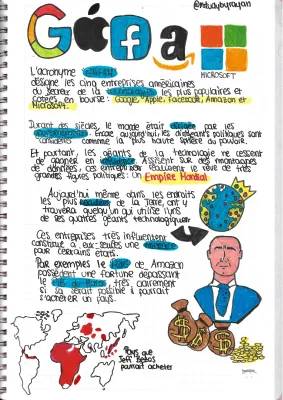 @mstudybyrayan
G a f a
MICROSOFT
L'acronyme GAFAM
désigne les cinq entreprises américaines
du secteur de la les plus populaires et
cotées en bourse: Google, Apple, Facebook, Amazon et
Microsoft.
Durant des siècles, le monde était par les
Encore aujourd'hui, les dirigeants politiques sont
considérés comme la plus haute sphère du pouvoir.
Et pourtant, les géants de la technologie ne cessent
de gagner en Assises sur des montagnes
de données, ces entreprises réalisent le rêve de très
grandes figures politiques: Un Empire Mondial
Aujourd'hui même dans les endroits
les plus de la Terre, on y
trouvera quelqu'un qui utilise l'un
de ces quatres géants technologiques
Ces entreprises très influentes
constitue à eux-seules une
pour certains états.
Par exemples le de Amazon
possèdent une fortune dépassant
le de très clairement
si ça serait possible il pourrait
s'acheter un pays.
Pays que
Jeff Bezos
pourrait acheter